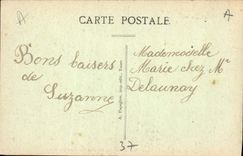 A
A
CARTE POSTALE.
Bons baisers
de
Suzanne
Mademoiselle
Marie chez Mr
Delaunay
37